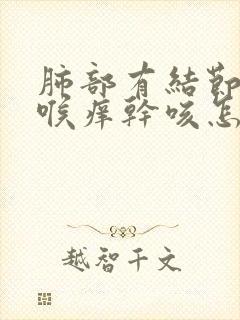 肺部有結節
喉痒幹咳怎
越智千文